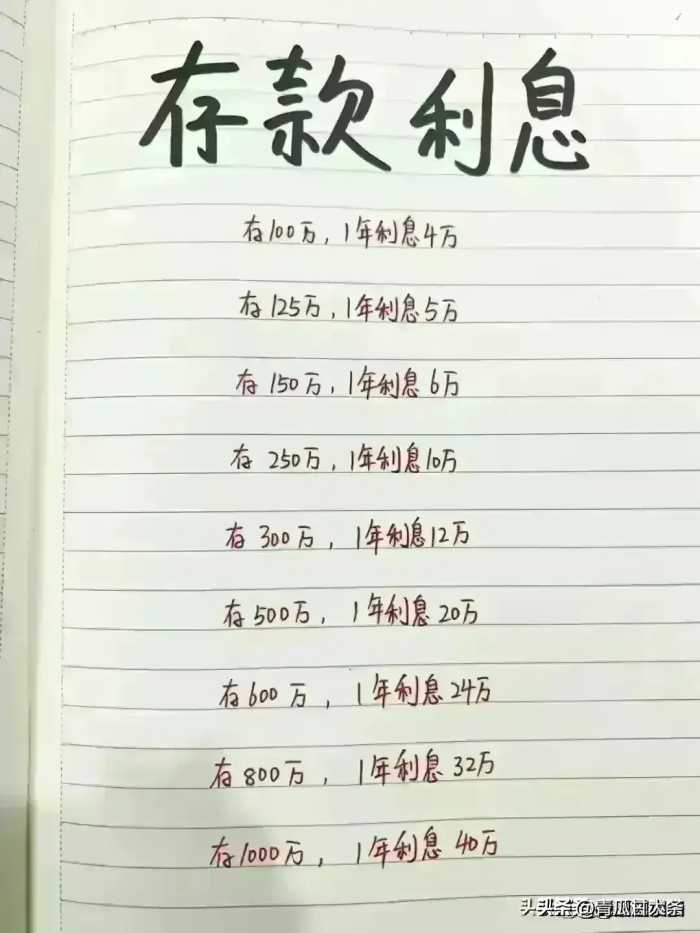 存款利息
存100万,1年利息4万
存125万,1年利息5万
存150万,1年利息6万
存250万,1年利息10万
存300万,1年利息12万
存500万,1年利息20万
存600万,1年利息24万
存800万,1年利息32万
存1000万,1年利息40万
头条@青瓜